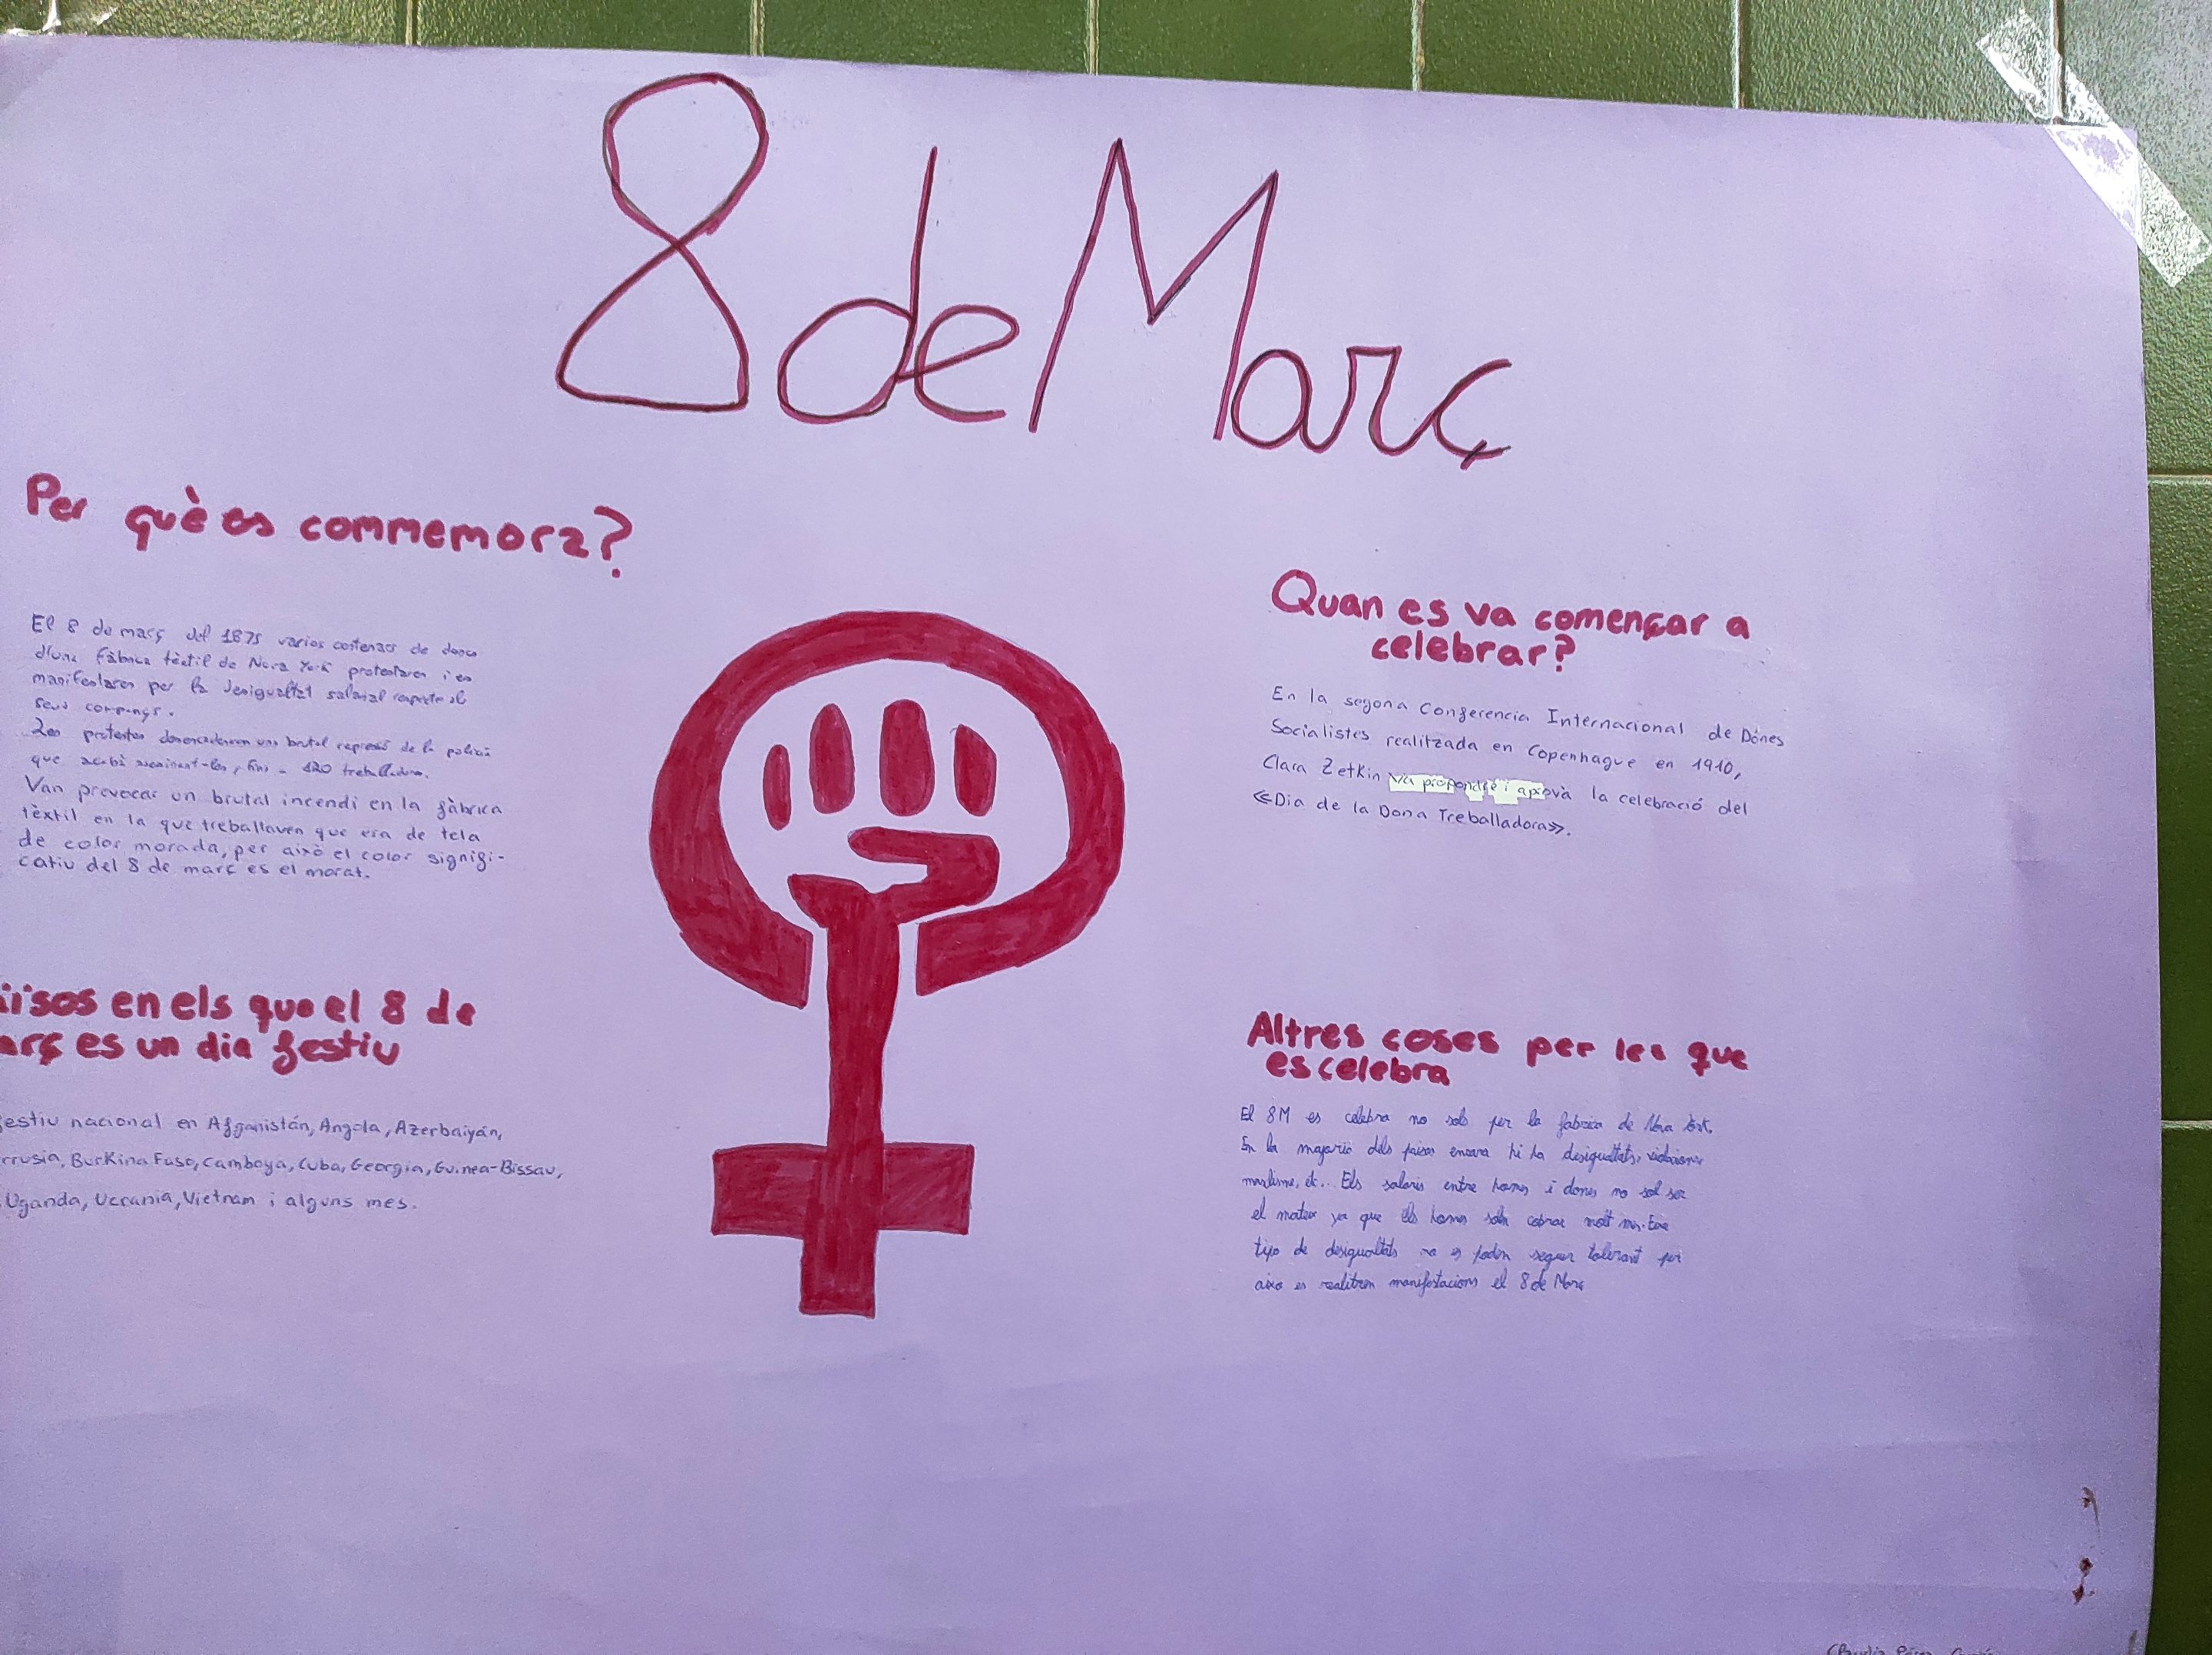 8 de Març
Per què es commemora?
El 8 de març del 1875 varios centenars de dones
d'una fàbrica tèxtil de Nova York protestaren i es
manifestaren per la desigualtat salarial respecte als
seus companys.
Les protestes desencadenaren una brutal repressió de la policia
que acabà assassinant-les, fins a 120 treballadores.
Van provocar un brutal incendi en la fàbrica
tèxtil en la que treballaven que era de tela
de color morada, per això el color signifi-
catiu del 8 de març es el morat.
ïsos en els que el 8 de
arç es un dia festiu
estiu nacional en Afganistán, Angola, Azerbaiyán,
rrusia, Burkina Faso, Camboya, Cuba, Georgia, Guinea-Bissau,
Uganda, Ucrania, Vietnam i alguns mes.
Quan es va començar a
celebrar?
En la segona Conferencia Internacional de Dónes
Socialistes realitzada en Copenhague en 1910,
Clara Zetkin va propondre i aprovà la celebració del
«Dia de la Dona Treballadora».
Altres coses per les que
es celebra
El 8M es celebra no sols per la fabrica de Nova York.
En la majoria dels paisos encara hi ha desigualtats, violacions
masclisme, etc... Els salaris entre homes i dones no sol ser
el mateix ya que els homes solen cobrar molt mes. Este
tipo de desigualtats no es poden seguir tolerant per
aixo es realitzen manifestacions el 8 de Març